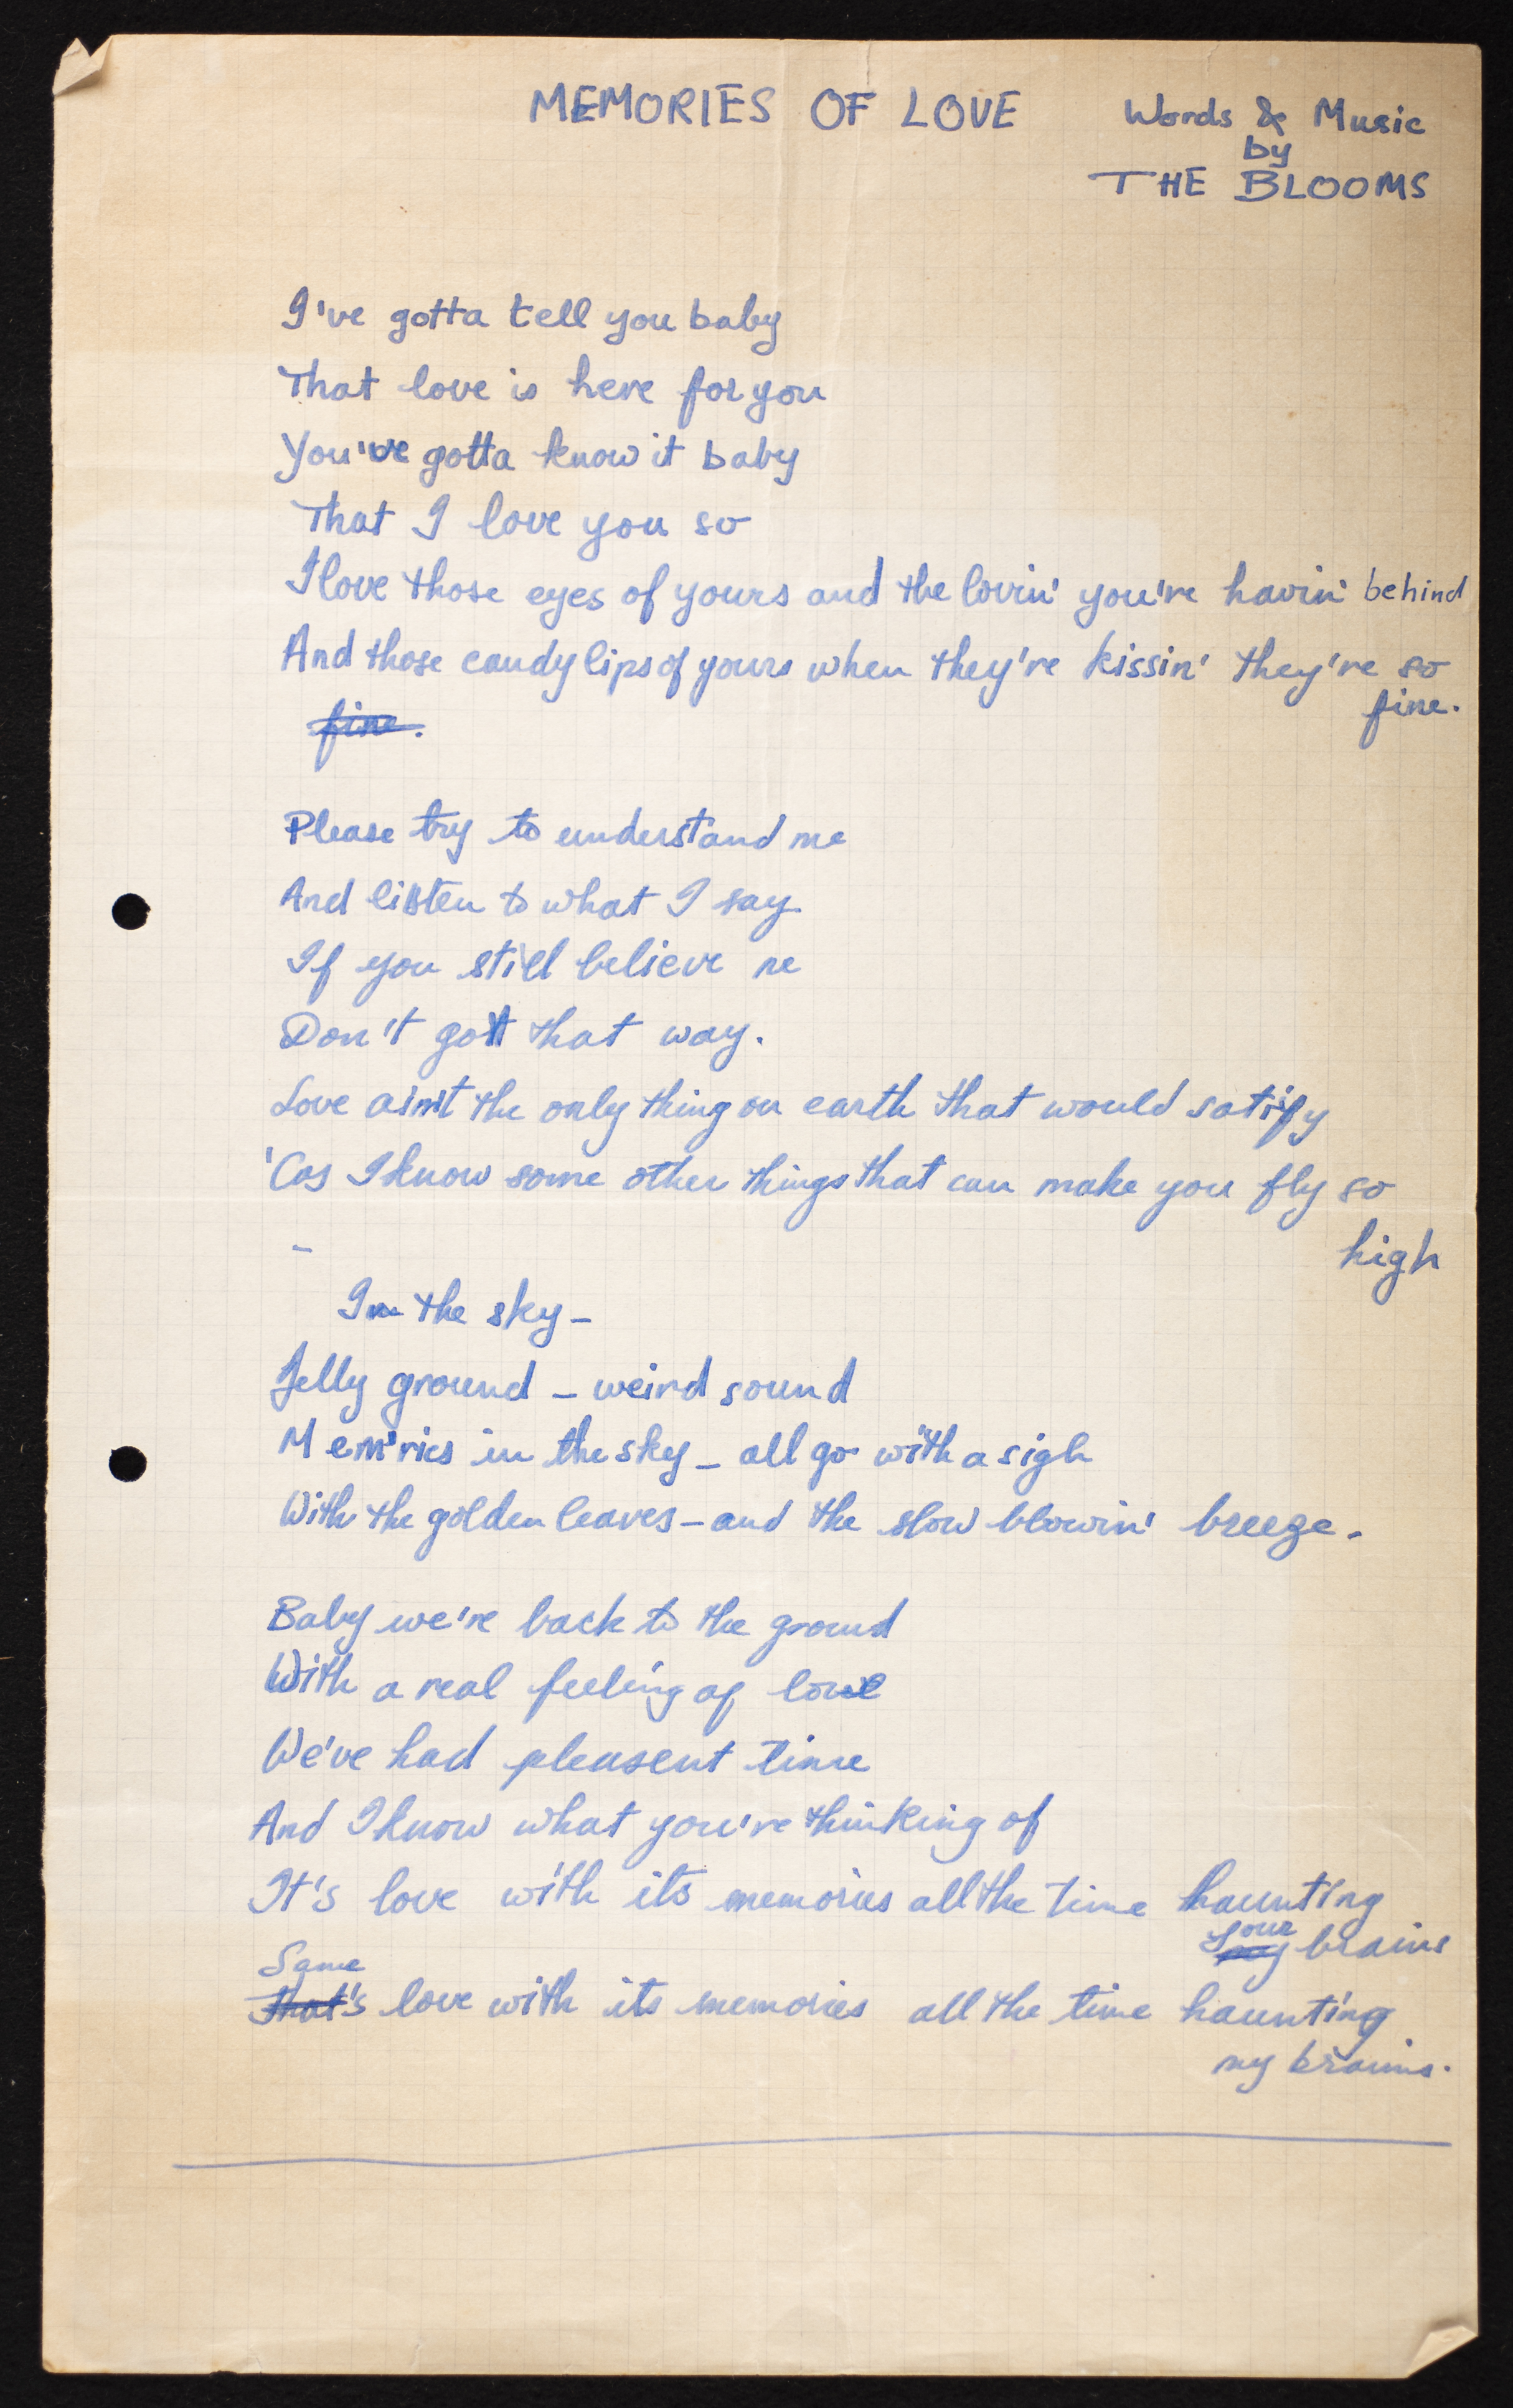 MEMORIES OF LOVE
Words & Music
by
THE BLOOMS
I've gotta tell you baby
That love is here for you
You've gotta know it baby
That I love you so
I love those eyes of yours and the lovin' you're havin' behind
And those candy lips of yours when they're kissin' they're so
fine.
fine.
Please try to understand me
And listen to what I say
If you still believe me
Don't got that way.
Love ain't the only thing on earth that would satify
'Cos I know some other things that can make you fly so
high
-
In the sky -
Jelly ground - weird sound
Mem'ries in the sky - all go with a sigh
With the golden leaves - and the slow blowin' breeze.
Baby we're back to the ground
With a real feeling of love
We've had pleasent time
And I know what you're thinking of
It's love with its memories all the time haunting
your
my brains
Same
that's love with its memories all the time haunting
my brains.